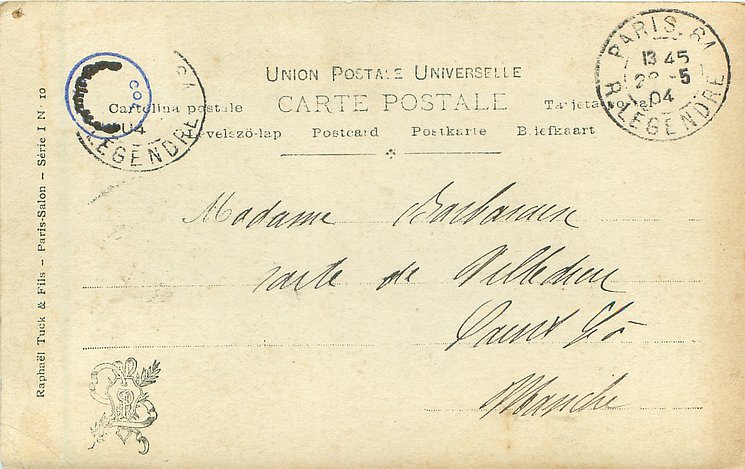 PARIS.61
13 45
28 -5
04
R. LEGENDRE
COF
61
04
LEGENDRE
UNION POSTALE UNIVERSELLE
CARTE POSTALE
Cartolina postale
Tarjeta postal
Levelszö-lap Postcard Postkarte Briefkaart
Madame
route de Villedieu
Saint Lô
Manche
Raphaël Tuck & Fils — Paris-Salon — Série I N· 10